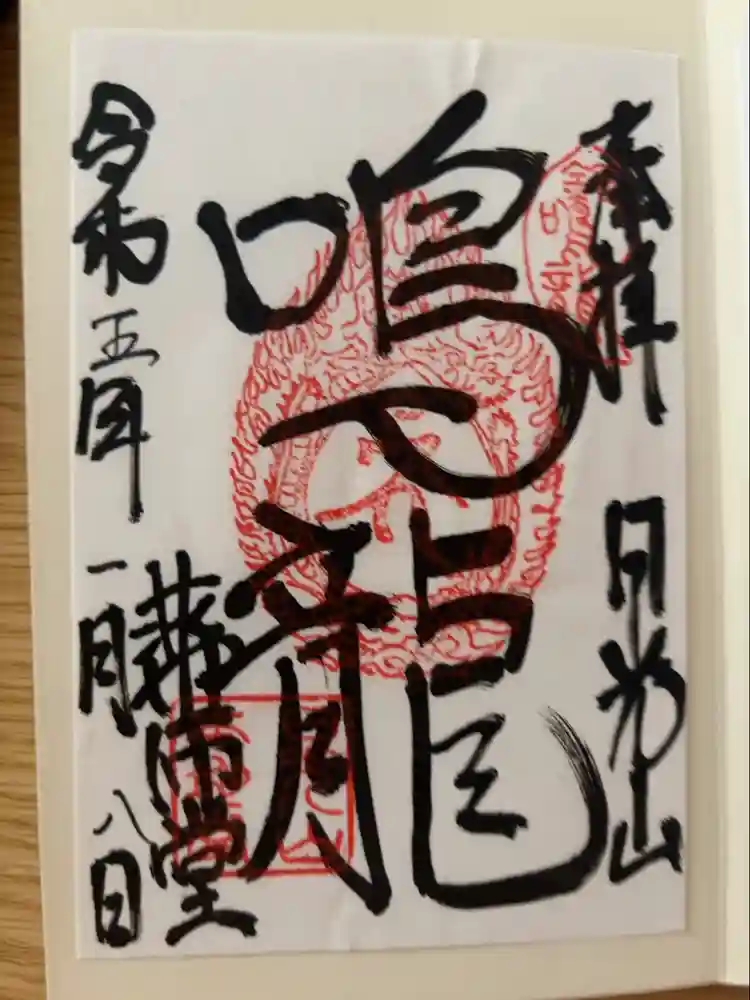 奉拝 日光山
鳴龍
薬師堂
令和五年一月八日